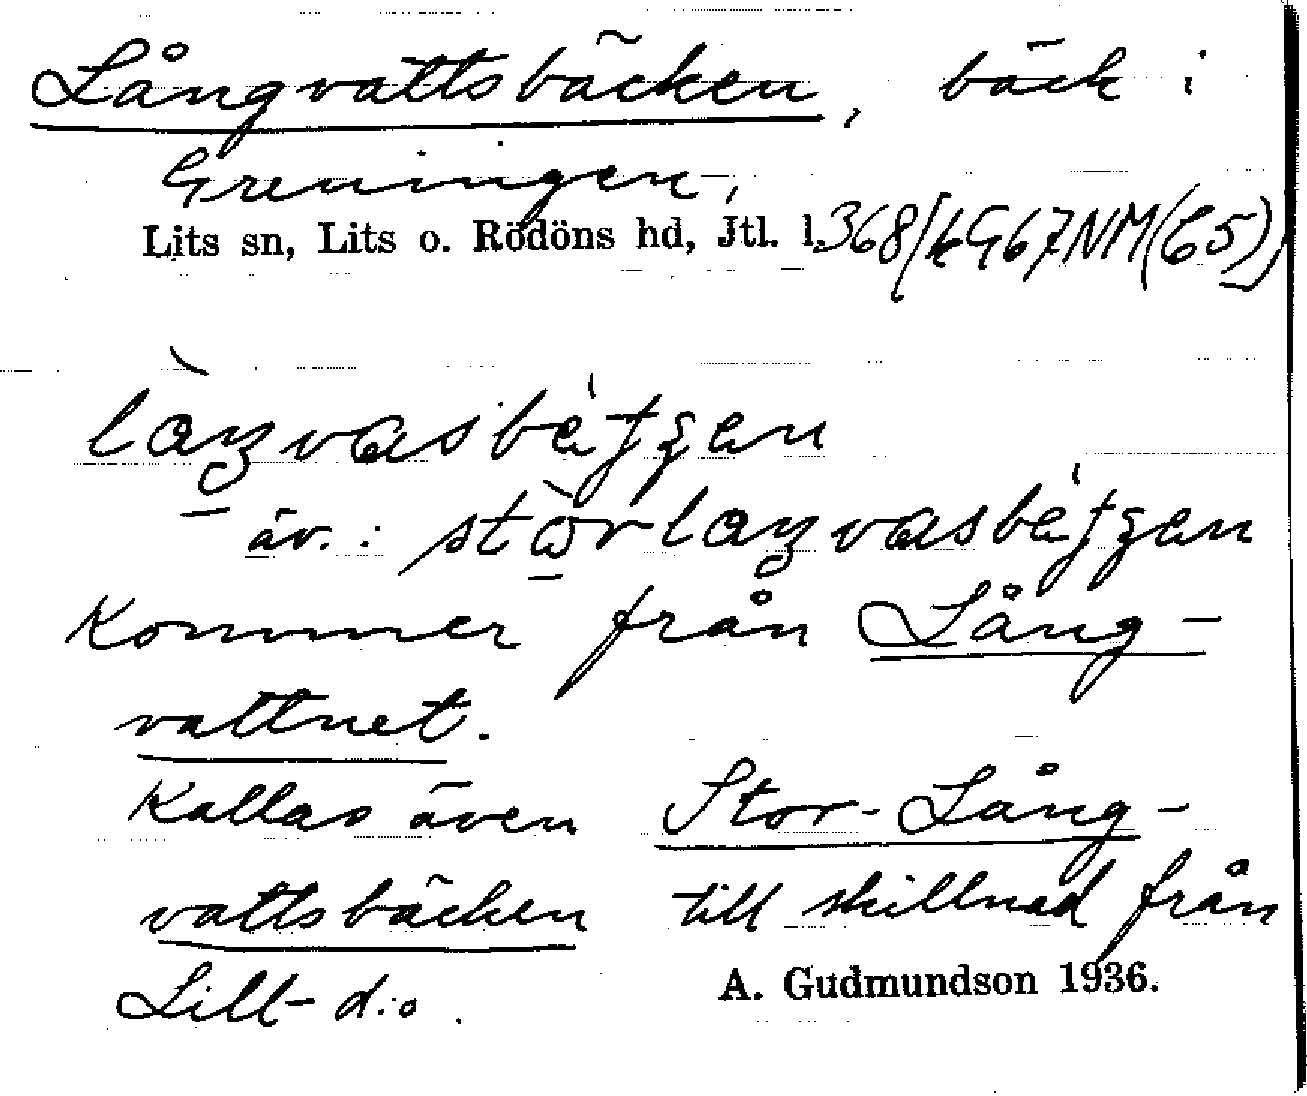 Långvattsbäcken, bäck i
Greningen,
Lits sn, Lits o. Rödöns hd, Jtl. l. 368/
làŋvasbètʃen
äv.: stòrlaŋvasbètʃen
Kommer från Lång-
vattnet.
Kallas även Stor-Lång-
vattsbäcken till skillnad från
Lill- d:o.
A. Gudmundson 1936.